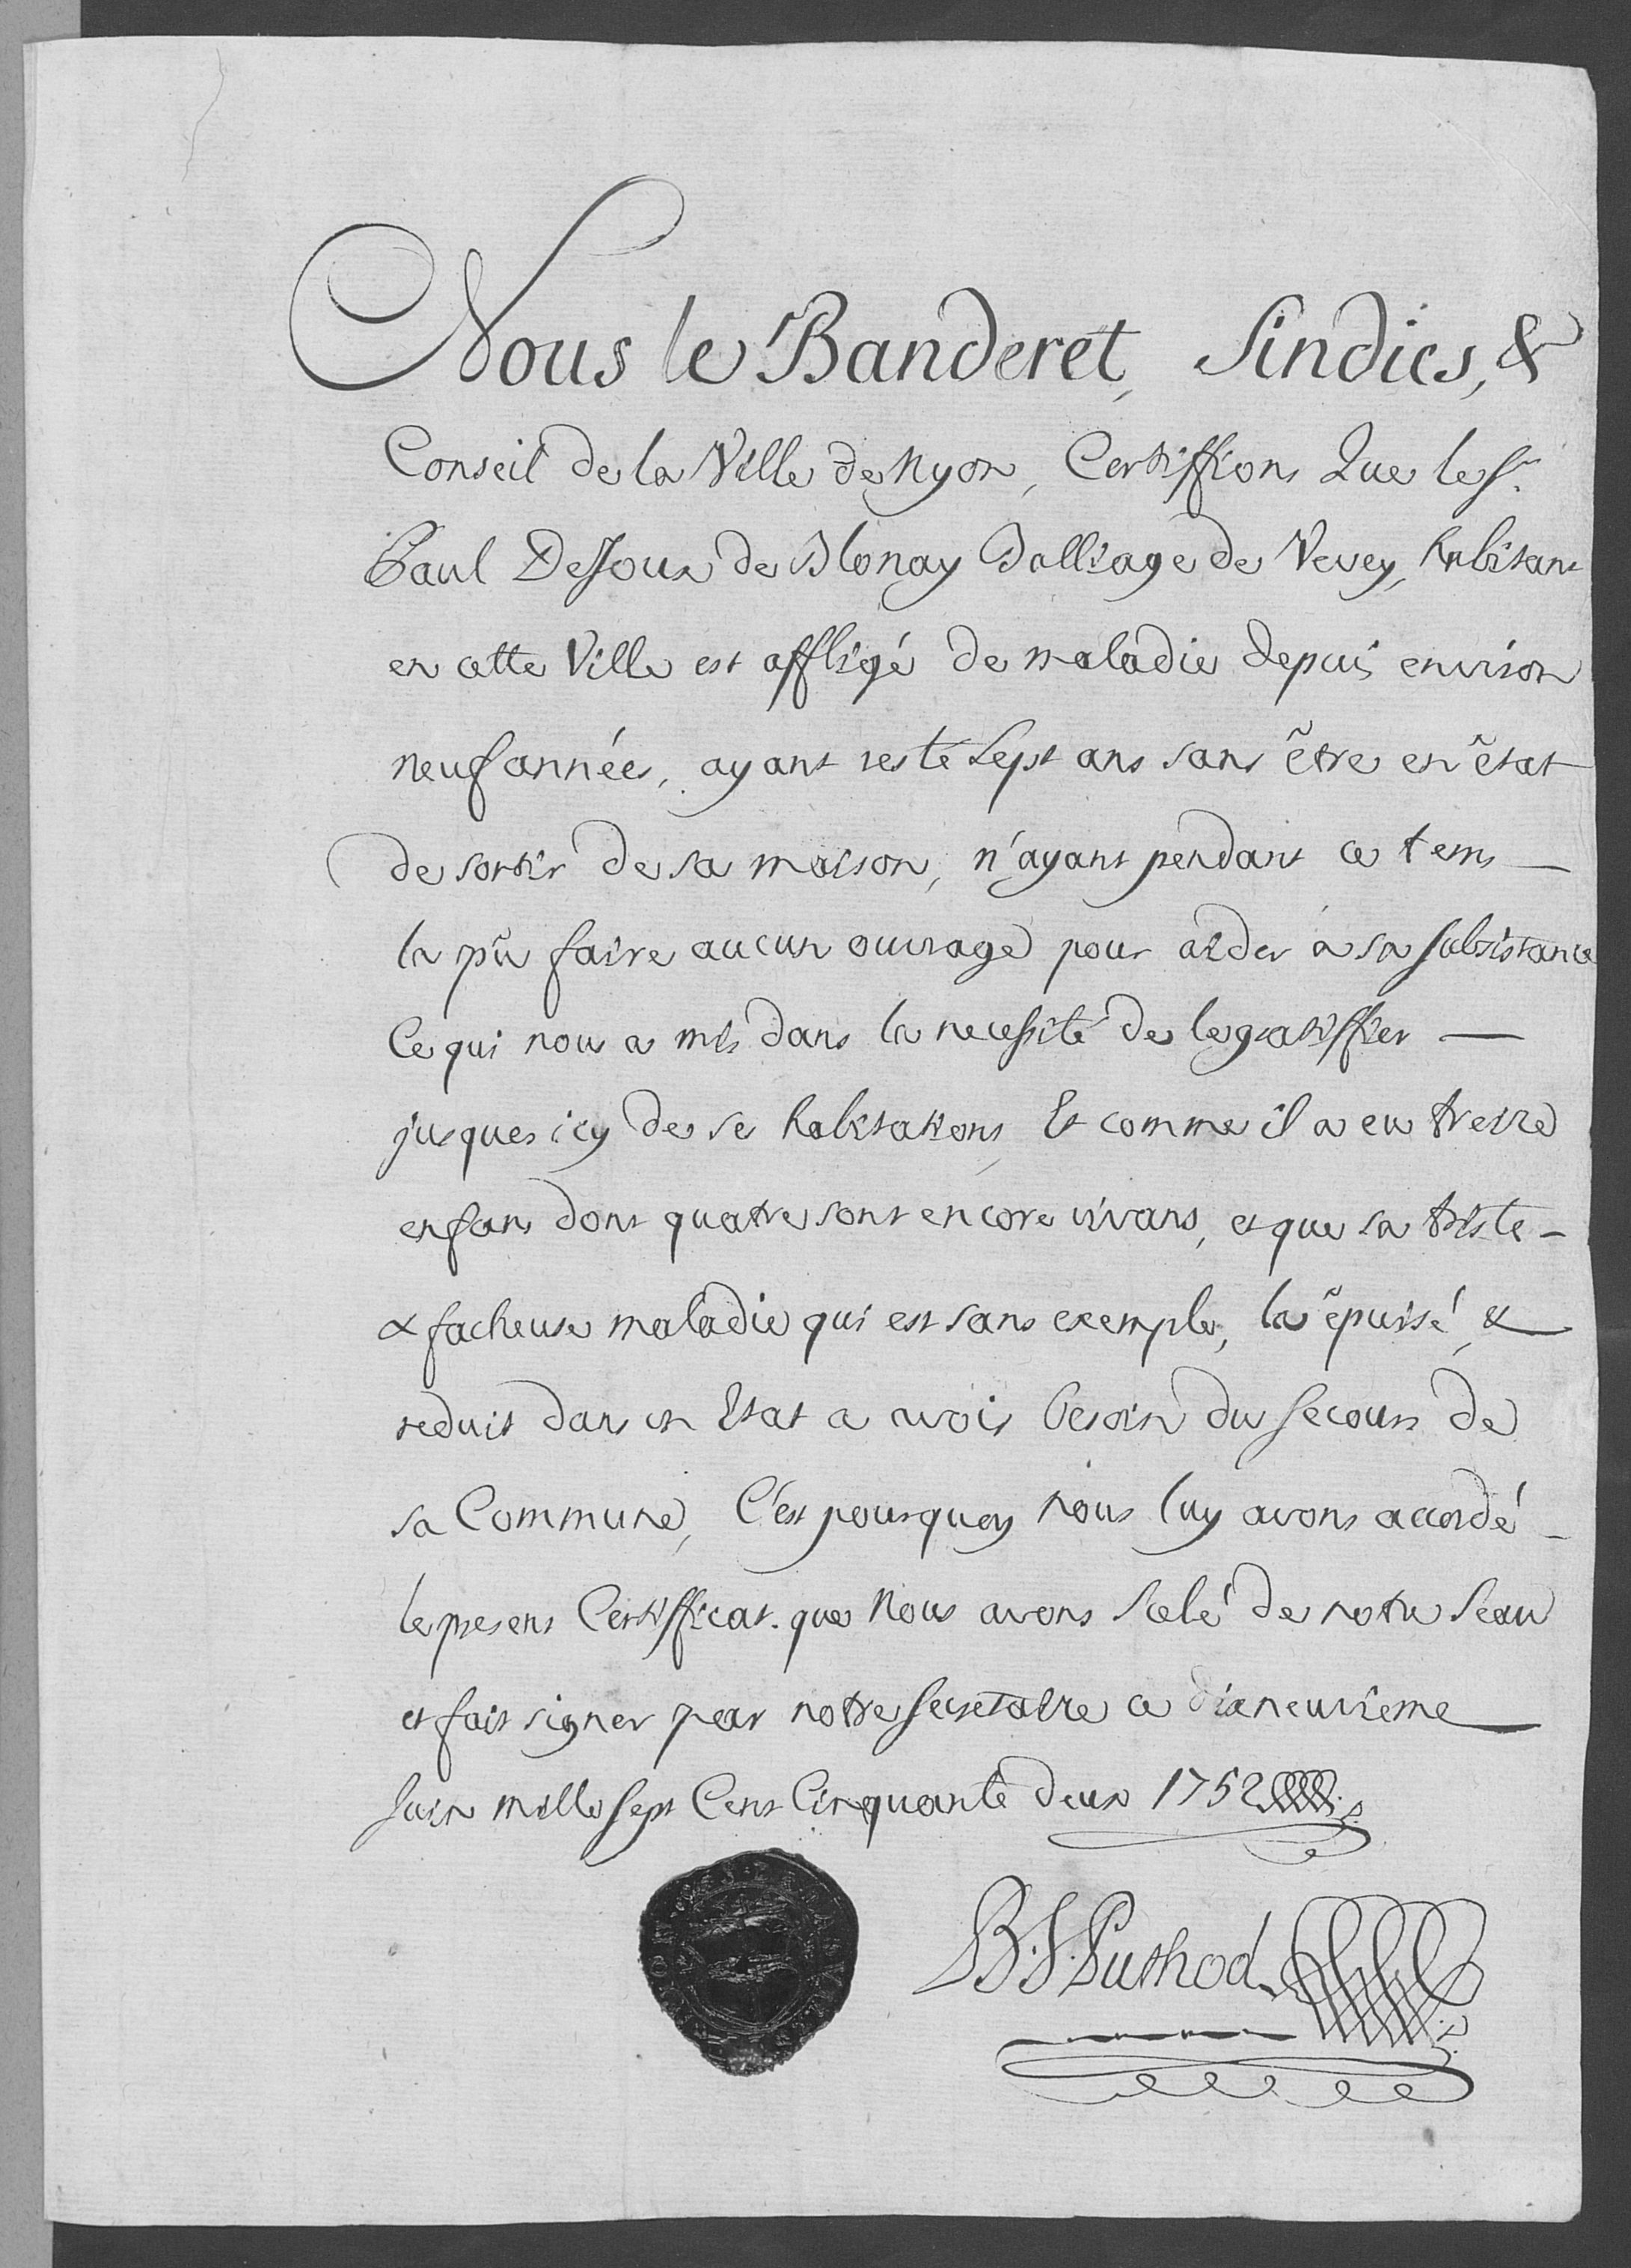 Nous le Banderet, Sindics, &
Conseil de la Ville de Nyon, Certiffions Que le Sr.
Paul DeJoux de Blonay Balliage de Vevey, habitant
en cette Ville est affligé de maladie depuis environ
neuf années, ayant resté Sept ans sans être en êtat
de sortir de sa maison, n'ayant pendant ce tems
la pû faire aucun ouvrage pour aider à sa subsistance
Ce qui nous a mis dans la necessité de le gratiffier
jusques icy de ses habitations, Et comme il a eu treize
enfans dont quatre sont encore vivans, et que sa triste
& facheuse maladie qui est sans exemple, la êpuisé, &
reduit dans un Etat a avoir besoin du secours de
sa Commune, C'est pourquoy nous luy avons accordé
le present Certifficat. que Nous avons scelé de notre Seau
et fait signer par notre Secretaire ce dixneuvieme
Juin mille sept Cent Cinquante deux 1752